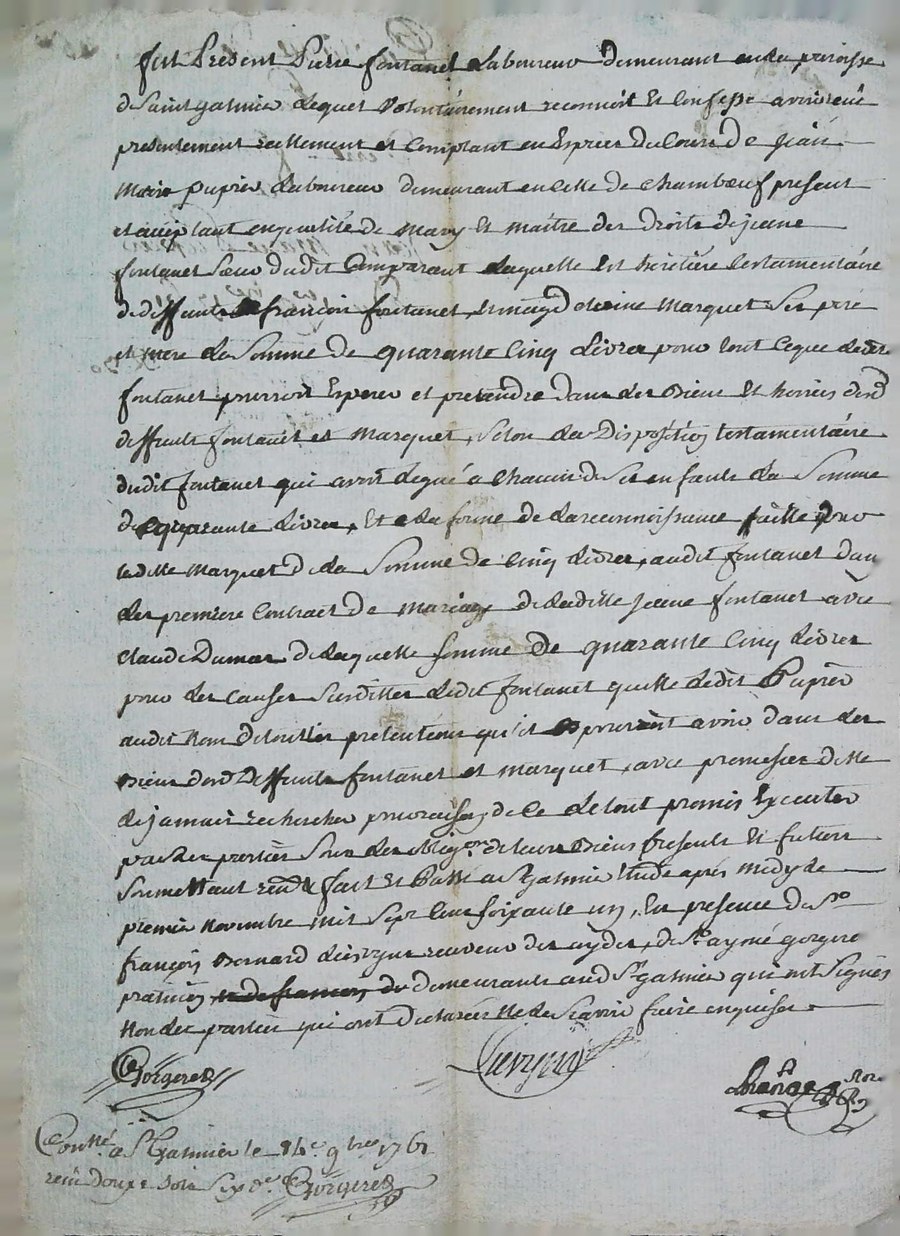 fut Présent Pierre fontanel Laboureur demeurant en La paroisse
de Saint galmier Lequel volontairement reconnoit Et Confesse avoir reçû
presentement reellement et Comptant en Espèces du Cours De jean
Marie pupier Laboureur demeurant en Celle de Chambœuf present
et acceptant en qualité de Mary Et maitre des droits de jeane
fontanel Sœur dudit Comparant Laquelle Est heritière testamentaire
de deffunts françois fontanel, et marquet Ses père
et mere La Somme de quarante Cinq Livres pour tout Ceque ledit
fontanel pourroit Esperer et pretendre dans Les Biens Et hoiries desd
deffunts fontanel et Marquet, Selon La Disposition testamentaire
dudit fontanel qui avoit Legué a Chacun de Ses enfants La Somme
de quarante Livres, Et La forme de La reconnoissance faitte pour
ladite Marquet De La Somme de Cinq Livres, audit fontanel dans
Le premier Contract De Mariage de Laditte jeane fontanel avec
Claude Dumas De Laquelle Somme De quarante Cinq Livres
pour Les Causes Susdittes Ledit fontanel quitte Ledit Pupier
audit Nom De touttes pretentions qu'il pourroit avoir dans Les
Biens desd Deffunts fontanel et Marquet, avec promesse de
jamais rechercher pour raison de Ce Le tout promis Executer
par Les parties Sous Les oblig.on de Leurs Biens presents Et futurs
Soumettant fait Et Passé a St galmier Etude après Midy Le
premier Novembre mil Sept Cent Soixante un, En presence De Sr
françois Bernard receveur des aydes, de Sr aymé gorgere
praticien demeurants aud St galmier qui ont Signés
Non Les parties qui ont Declarées Ne Le Scavoir faire enquises
Gorgeret
Contlé a St Galmier le 14e 9bre 1761
reçu douze sols Six d. Gorgeret